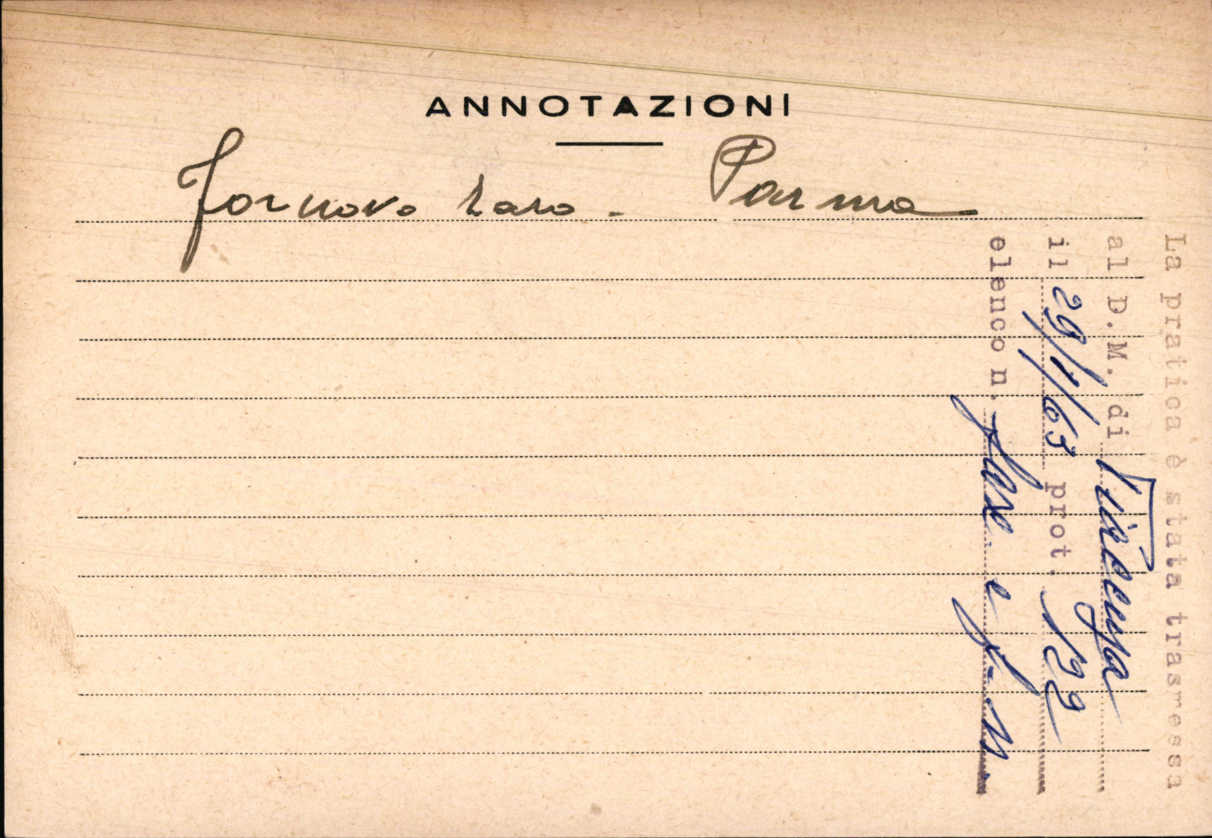 ANNOTAZIONI
Fornovo Taro - Parma
La pratica è stata trasmessa
al D.M. di Piacenza
il 29/1/63 prot. 199
elenco n.